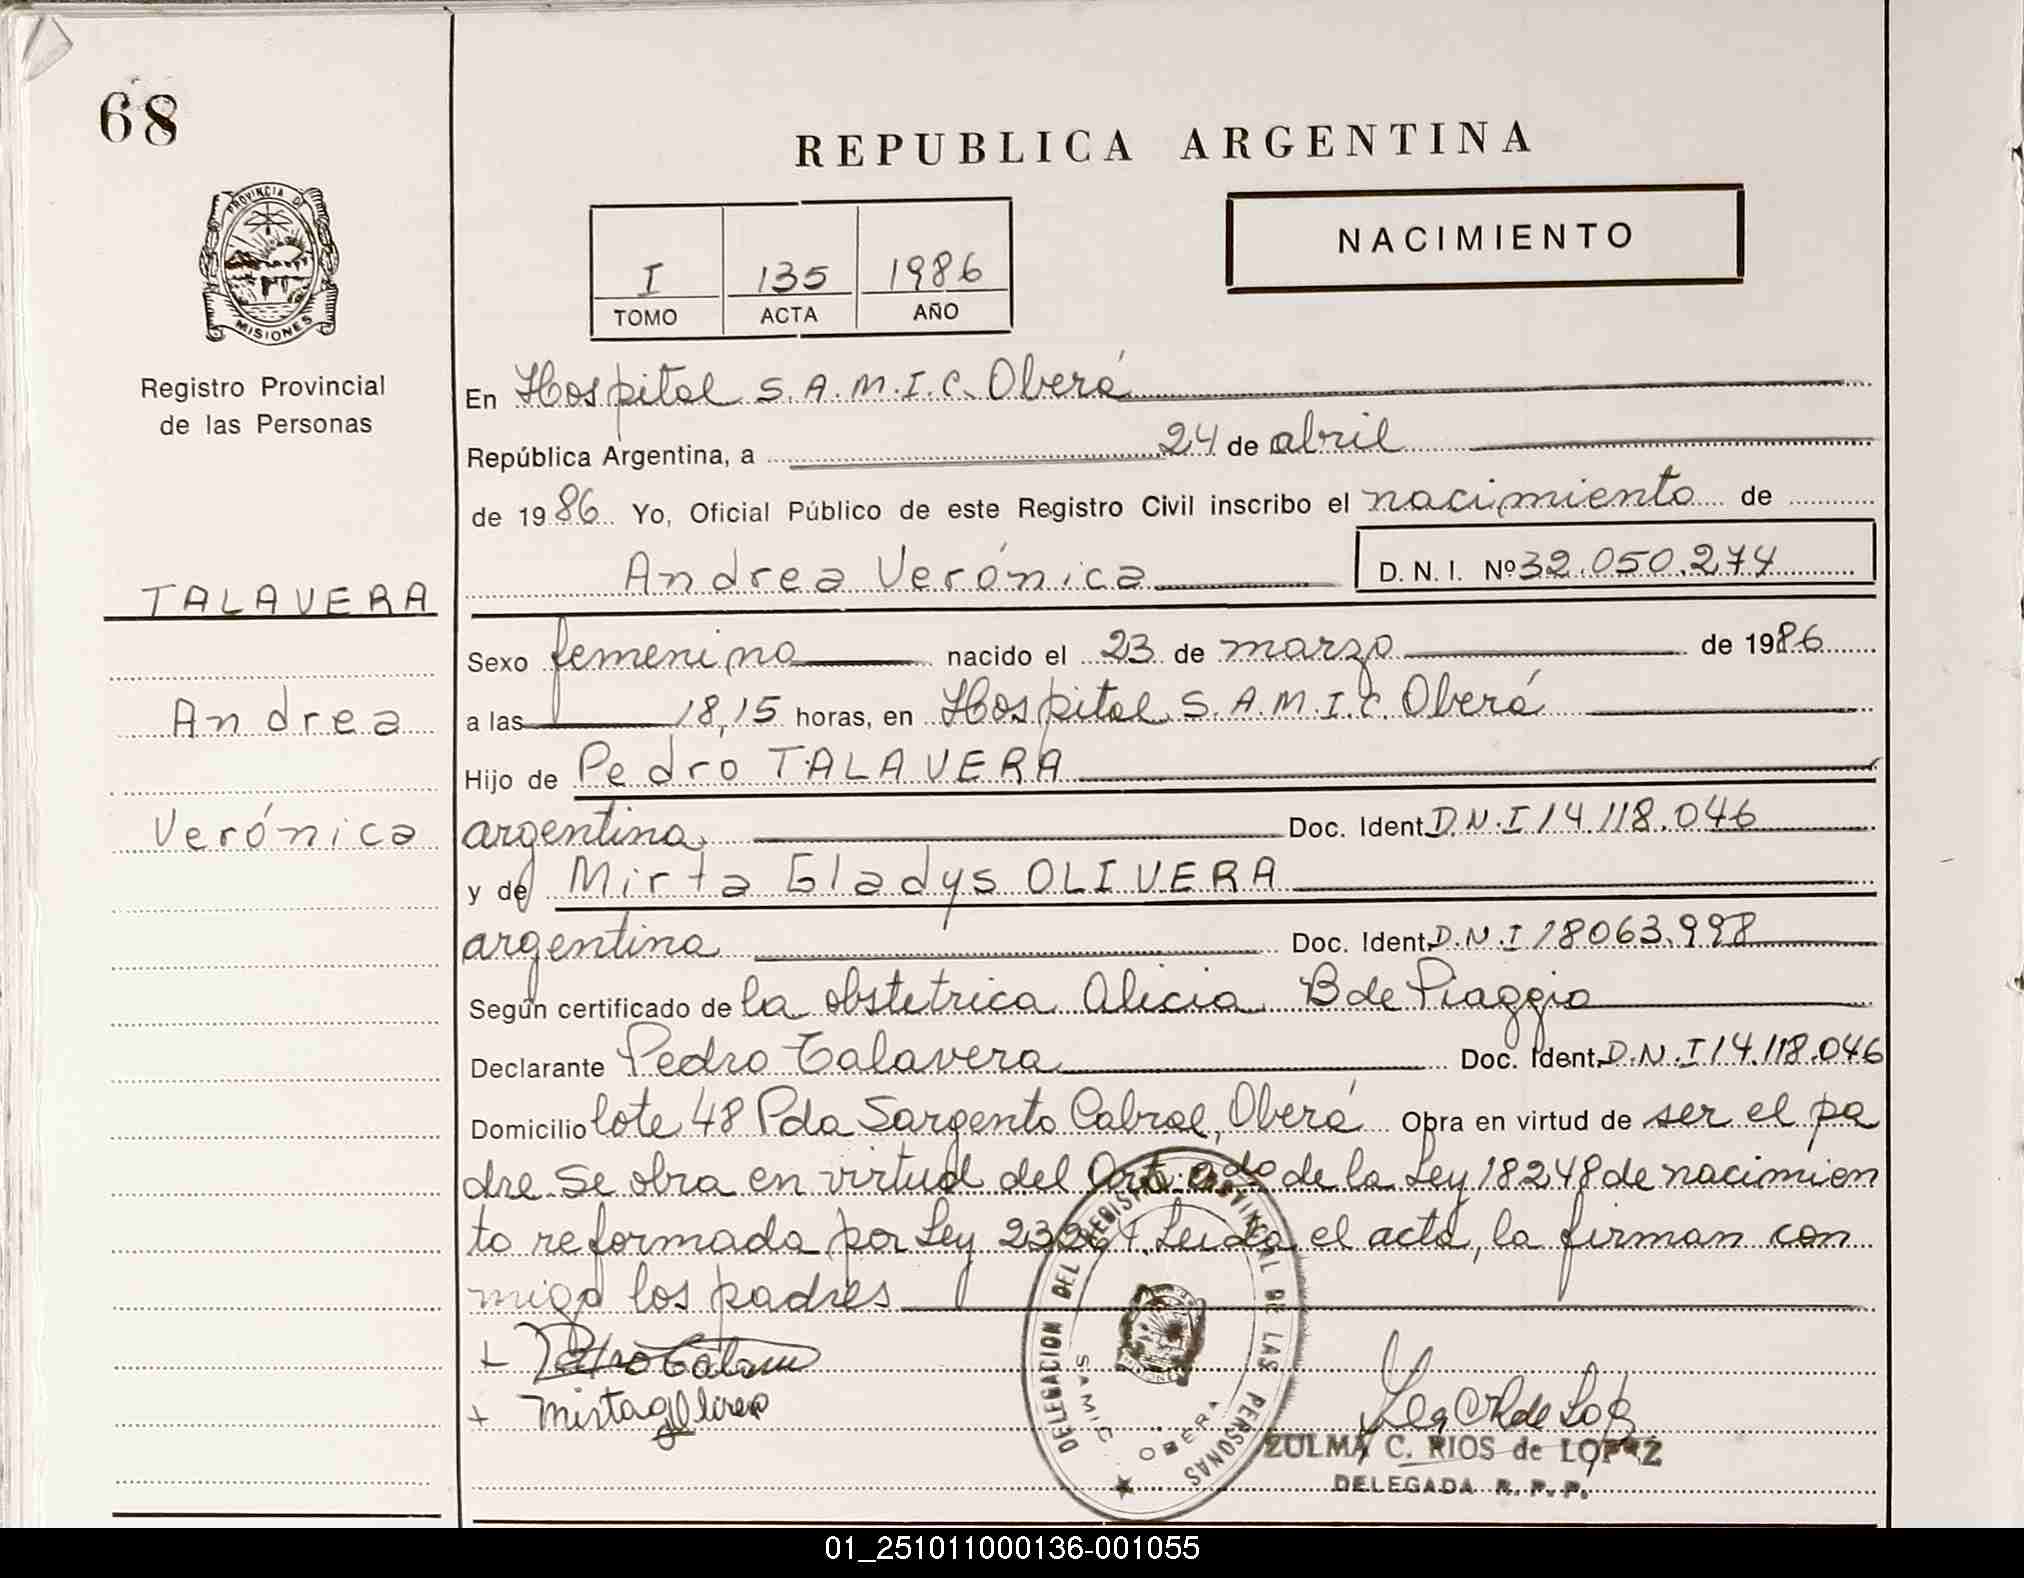 68
REPUBLICA ARGENTINA
PROVINCIA DE
MISIONES
Registro Provincial
de las Personas
I 135 1986
TOMO ACTA AÑO
NACIMIENTO
En Hospital S.A.M.I.C. Oberá
República Argentina, a 24 de abril
de 1986 Yo, Oficial Público de este Registro Civil inscribo el nacimiento de
Andrea Verónica D. N. I. Nº 32.050.274
TALAVERA
Andrea
Verónica
Sexo femenino nacido el 23 de marzo de 1986
a las 18,15 horas, en Hospital S.A.M.I.C. Oberá
Hijo de Pedro TALAVERA
argentina Doc. Ident. D.N.I 14.118.046
y de Mirta Gladys OLIVERA
argentina Doc. Ident. D.N.I 18063.998
Según certificado de la obstetrica Alicia B de Piaggio
Declarante Pedro Talavera Doc. Ident. D.N.I 14.118.046
Domicilio lote 48 Pda Sargento Cabral, Oberá Obra en virtud de ser el pa
dre Se obra en virtud del Art. 2do de la Ley 18248 de nacimien
to reformada por Ley Leida el acta, la firman con
migo los padres
DELEGACION DEL REGISTRO PROVINCIAL DE LAS PERSONAS
SAMIC OBERA
ZULMA C. RIOS de LOPEZ
DELEGADA R. P. P.
01_251011000136-001055